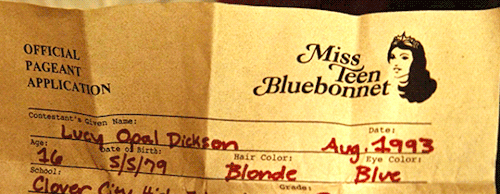 OFFICIAL
PAGEANT
APPLICATION
Miss
Teen
Bluebonnet
Contestant's Given Name: Date:
Lucy Opal Dickson Aug. 1993
Age: Date of Birth: Hair Color: Eye Color:
16 5/5/79 Blonde Blue
School: Grade:
Clover City High